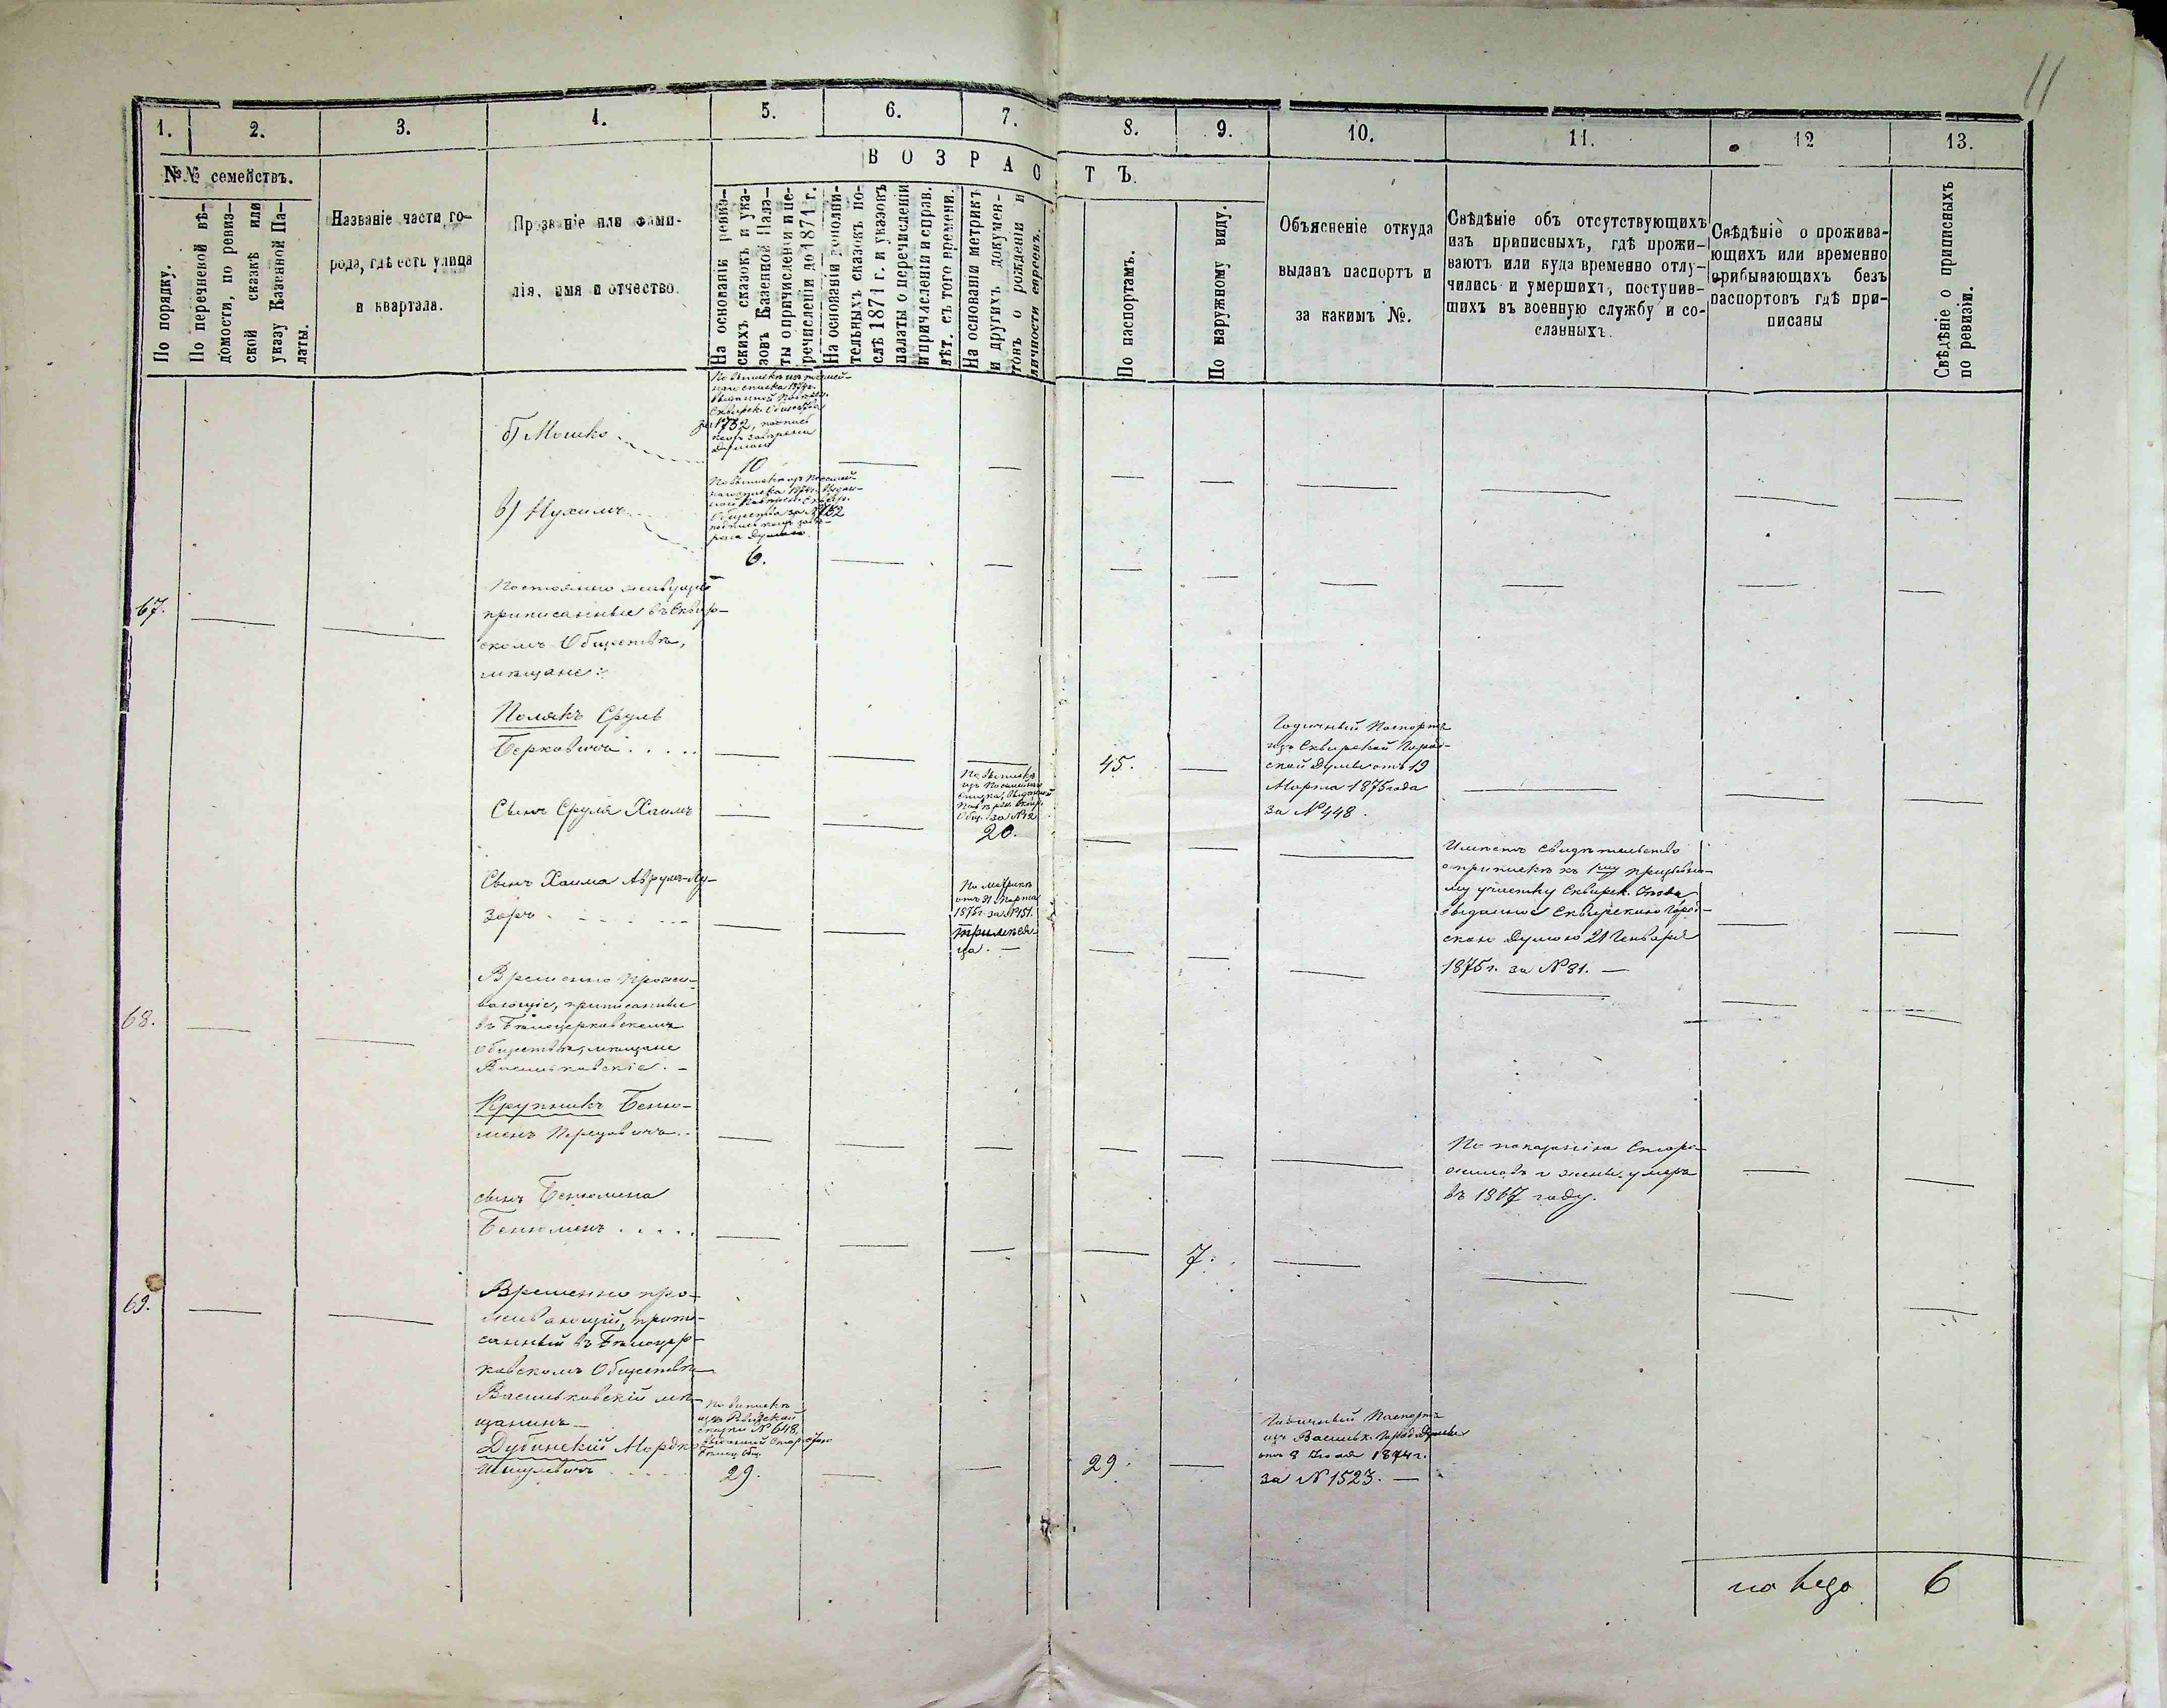 11
1. 2. 3. 4. 5. 6. 7. 8. 9. 10. 11. 12 13.
№№ семействъ.
По порядку.
По перечневой вѣ-
домости, по ревиз-
ской сказкѣ или
указу Казенной Па-
латы.
Названіе части го-
рода, гдѣ есть улица
и квартала.
Прозваніе или фами-
лія, имя и отчество.
ВОЗРАСТЪ.
На основаніи ревиз-
скихъ сказокъ и ука-
зовъ Казенной Пала-
ты о причисленіи и пе-
речисленіи до 1871 г.
На основаніи дополни-
тельныхъ сказокъ по-
слѣ 1871 г. и указовъ
палаты о перечисленіи
и причисленіи и справ.
лѣт. съ того времени.
На основаніи метрикъ
и другихъ докумен-
товъ о рожденіи и
личности евреевъ.
По паспортамъ.
По наружному виду.
Объясненіе откуда
выданъ паспортъ и
за какимъ №.
Свѣдѣніе объ отсутствующихъ
изъ приписныхъ, гдѣ прожи-
ваютъ или куда временно отлу-
чились и умершихъ, поступив-
шихъ въ военную службу и со-
сланныхъ.
Свѣдѣніе о прожива-
ющихъ или временно
прибывающихъ безъ
паспортовъ гдѣ при-
писаны
Свѣдѣніе о приписныхъ
по ревизіи.
б) Мошко
По выпискѣ изъ посемей-
наго списка 1874 г.
выданной
Сквирск. Общества
за № 752,
Думою
10
в) Нухимъ
По выпискѣ изъ Посемей-
наго списка 1874 г. выдан-
ной
Общества за № 752
Думою
6.
67.
Постоянно живущіе
приписанные въ Сквир-
скомъ Обществѣ,
мѣщане:
Полякъ Сруль
Берковичъ
45.
Годичный Паспортъ
изъ Сквирской Город-
ской Думы отъ 19
Марта 1875 года
за № 448.
Сынъ Сруля Хаимъ
По выпискѣ
изъ Посемейнаго
списка, выданной
Общ. за №
20.
Имѣетъ свидѣтельство
о припискѣ къ 1му призывно-
му участку Сквирск. уѣзда
выданное Сквирскою Город-
скою Думою 21 Генваря
1875 г. за № 31. —
Сынъ Хаима Аврумъ-Лу-
заръ
По метрикѣ
отъ 31 Марта
1875 г. за № 151.
три мѣся-
ца. —
68.
Временно прожи-
вающіе, приписанные
въ Бѣлоцерковскомъ
Обществѣ, мѣщане
Васильковскіе. —
Крупникъ Беню-
менъ Перцовичъ
По показанію Старо-
жиловъ и жены умеръ
въ 1867 году.
сынъ Бенюмена
Бенюменъ
7.
69.
Временно про-
живающій, припи-
санный въ Бѣлоцер-
ковскомъ Обществѣ
Васильковскій мѣ-
щанинъ —
Дубинскій Мордко
Ицулевичъ
По выпискѣ
изъ Ревизской
сказки № 648,
выданной Старостою
Бѣлоц. Общ.
29.
29.
Годичный Паспортъ
изъ Васильк. Город. Думы
отъ 8 1874 г.
за № 1523. —
на лицо 6